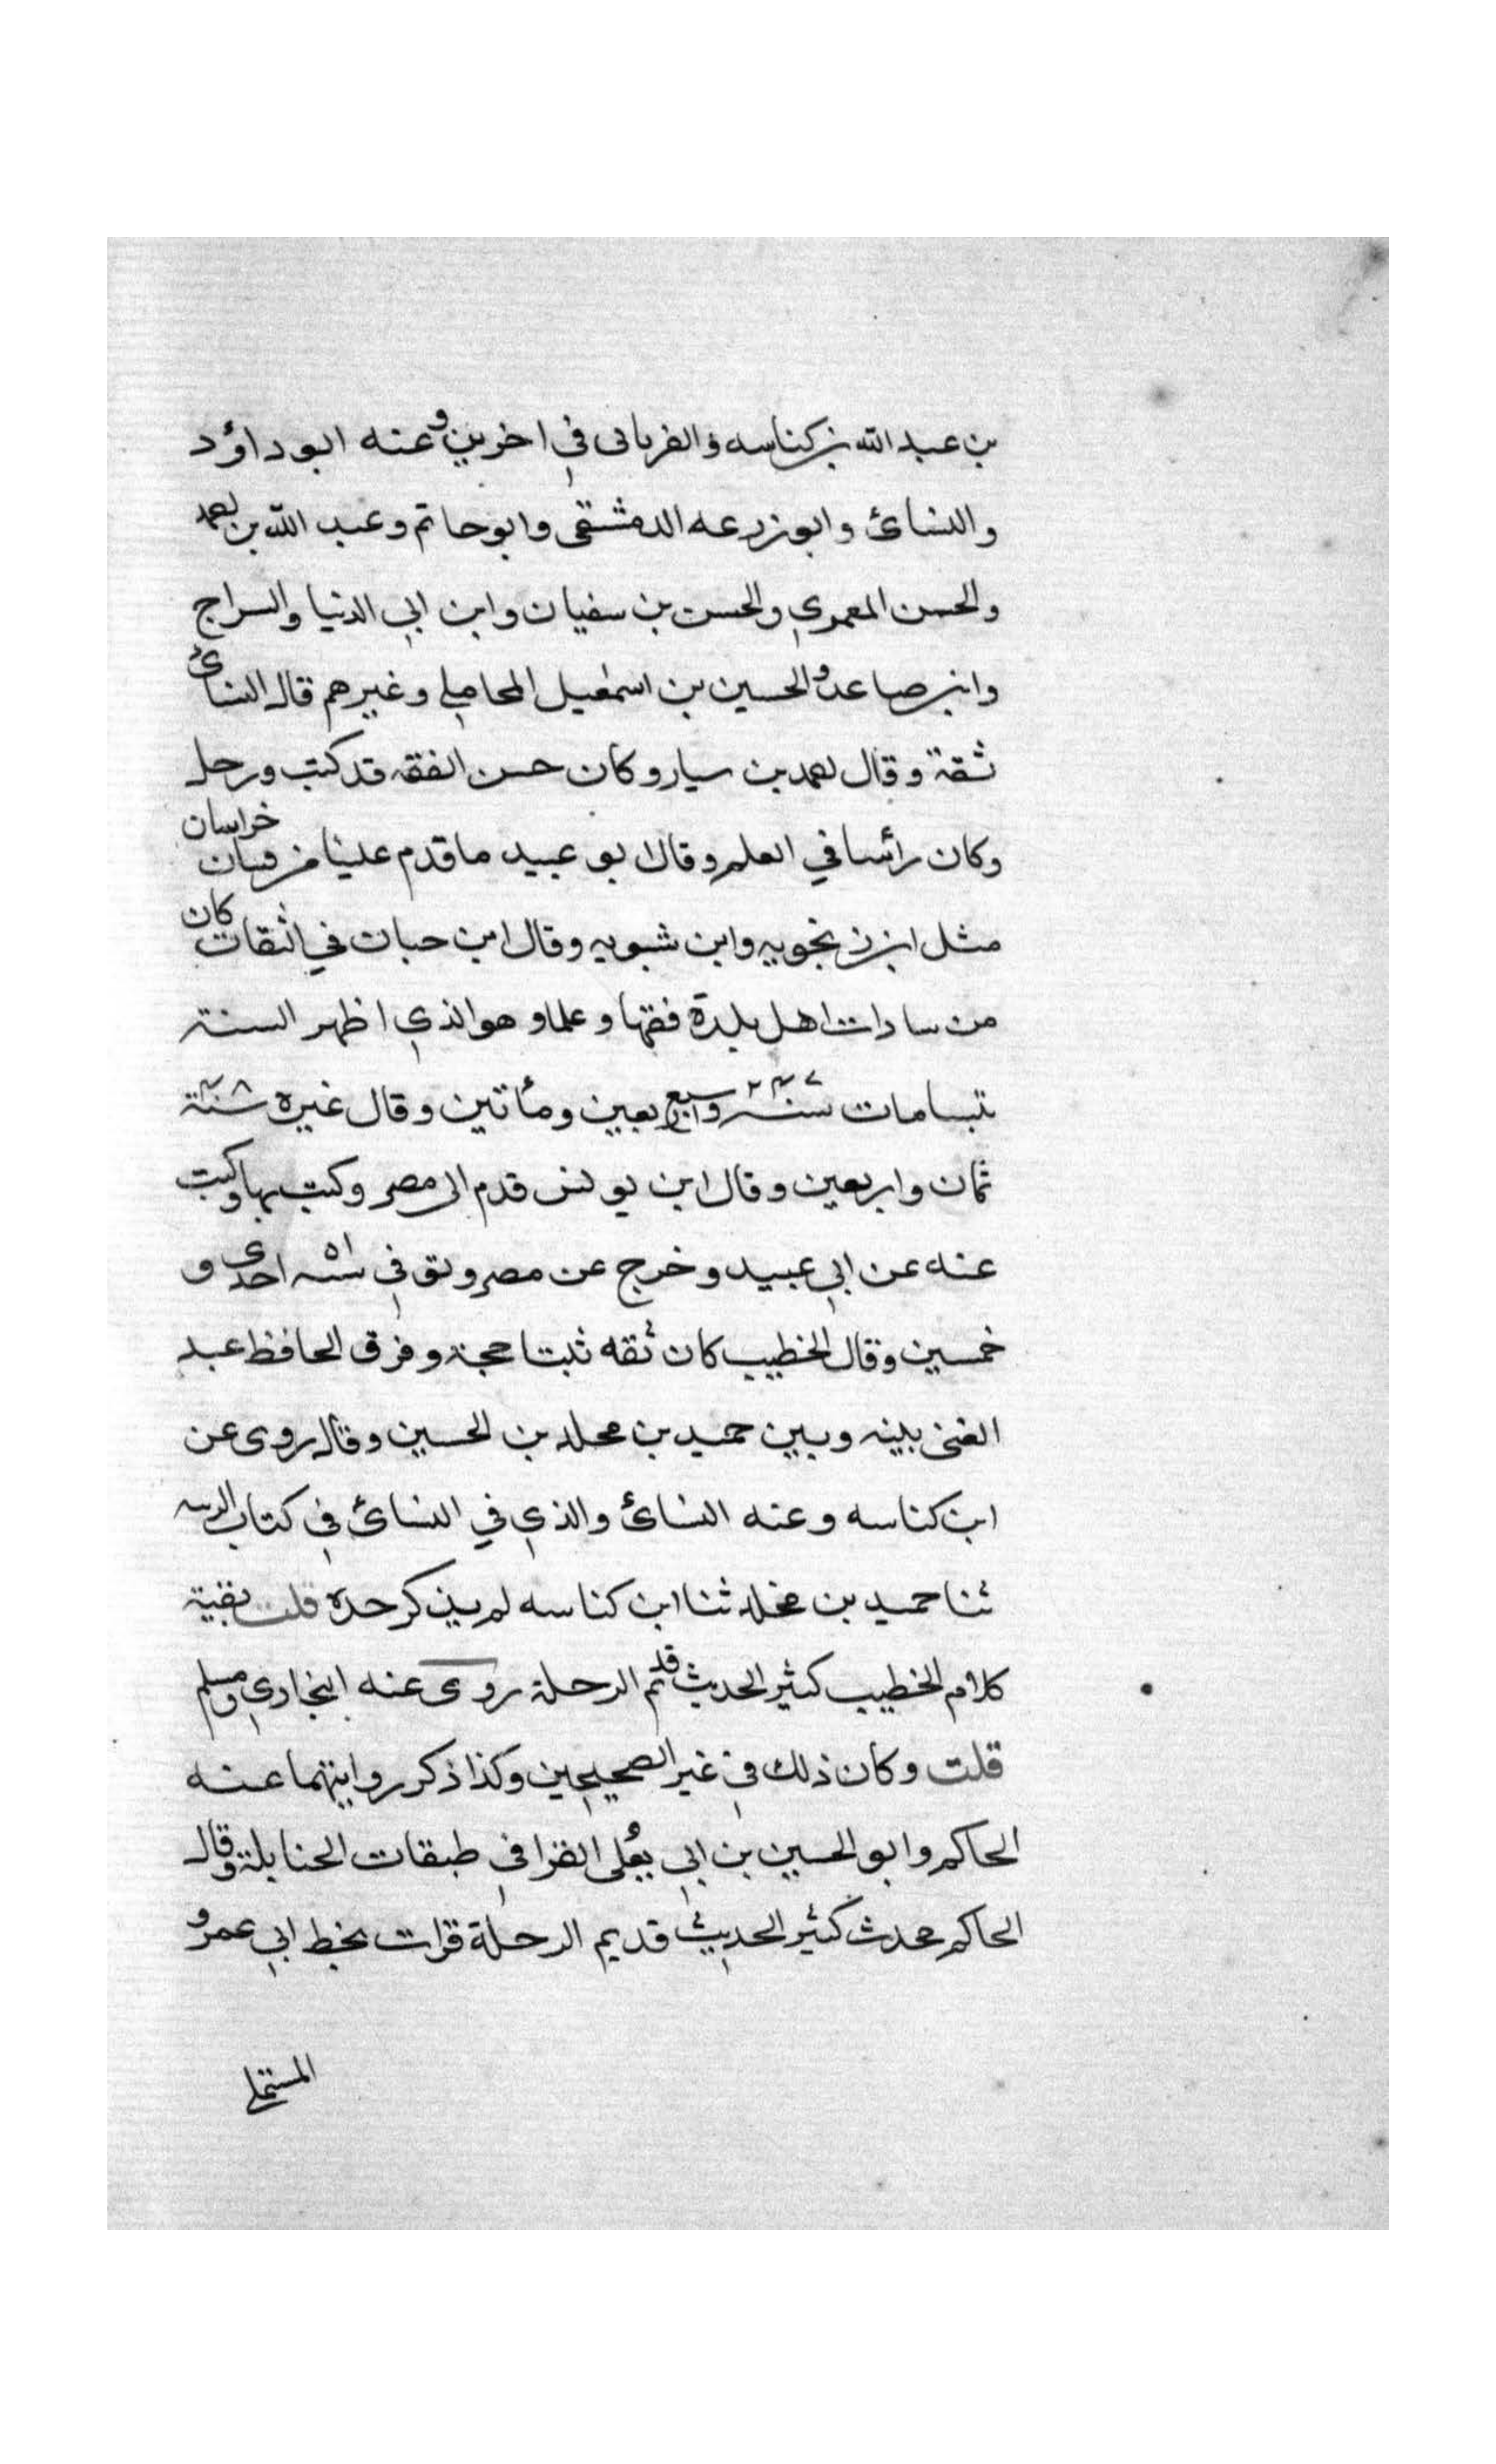 بن عبد الله بن كناسه والفريابى في اخرين وعنه ابو داؤد
والنسائ وابو زرعه الدمشقى وابو حاتم وعبد الله بن احمد
والحسن المعمري والحسن بن سفيان وابن ابي الدنيا والسراج
وابن صاعد والحسين بن اسمعيل المحاملي وغيرهم قال النسائ
ثقة وقال احمد بن سيار وكان حسن الفقه قد كتب ورحل
وكان رأسا في العلم وقال ابو عبيد ما قدم علينا من فتيان خراسان
مثل ابن زنجويه وابن شبويه وقال ابن حبان في الثقات كان
من سادات اهل بلده فقها وعلما وهو الذي اظهر السنة
بنسا مات سنة ٢٤٧ سبع واربعين ومأتين وقال غيره سنة ٤٨
ثمان واربعين وقال ابن يونس قدم الى مصر وكتب بها وكتب
عنه عن ابي عبيد وخرج عن مصر وتوفي سنه ٥١ احدى و
خمسين وقال الخطيب كان ثقه ثبتا حجة وفرق الحافظ عبد
الغنى بينه وبين حميد بن مخلد بن الحسين وقال روى عن
ابن كناسه وعنه النسائ والذي في النسائ في كتاب
ثنا حميد بن مخلد ثنا ابن كناسه لم يذكر جده قلت بقية
كلام الخطيب كثير الحديث قديم الرحلة روى عنه البخاري ومسلم
قلت وكان ذلك في غير الصحيحين وكذا ذكر روايتهما عنه
الحاكم وابو الحسين بن ابي يعلى الفرا في طبقات الحنابلة وقال
الحاكم محدث كثير الحديث قديم الرحلة قرات بخط ابي عمرو
المستملي